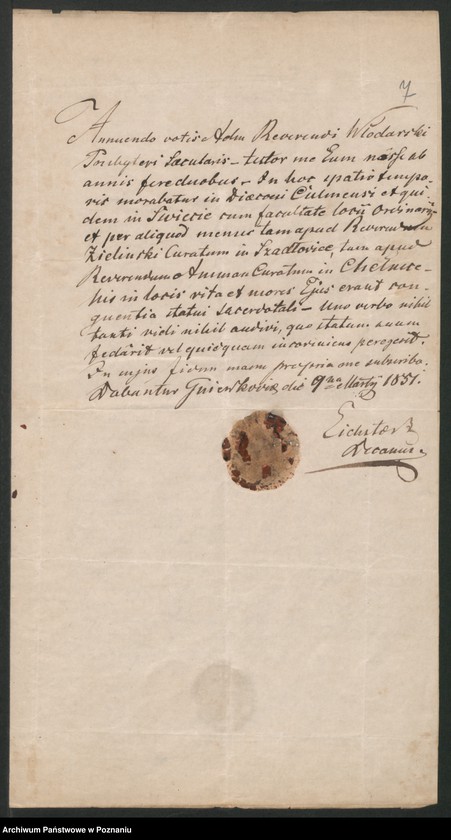 7
Annuendo votis Adm Reverendi Włodarski
Presbyteri Saecularis – testor me Eum nosse ab
annis fere duobus – In hoc spatio tempo-
ris morabatur in Diaecesi Culmensi et qui-
dem in Swiecie cum facultate Locii Ordinarii
et per aliquod menses tam apud Reverendum
Zielinski Curatum in tam apud
Reverendum Curatum in
his in locis vita et mores Ejus erant con-
quentia statui sacerdotali – Uno verbo nihil
tanti vidi nihil audivi, quo statum suum
fedarit vel quidquam incorincins peregerit.
In cujus fidem manu propria me subscribo.
Dabantur Gnievkoviae die 9na Martij 1851.
Eichstaedt
Decanus.
Archiwum Państwowe w Poznaniu